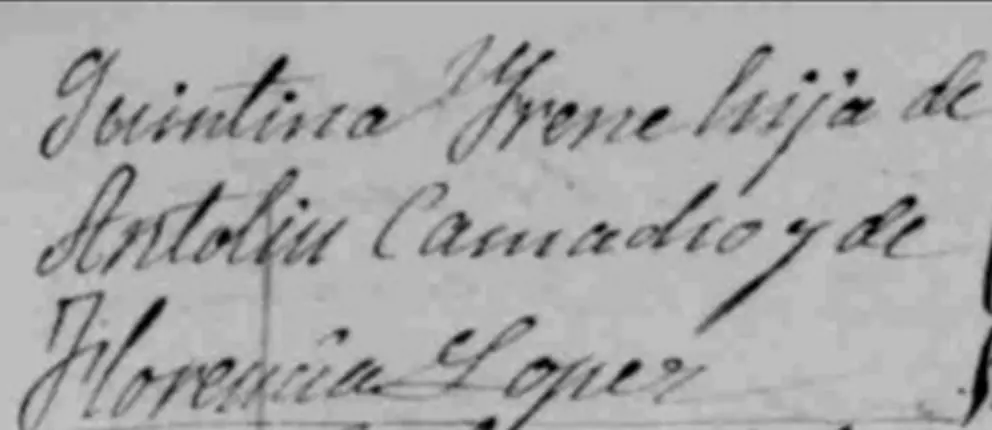 Quintina Yrene hija de
Antolin Camadro y de
Florencia Lopez